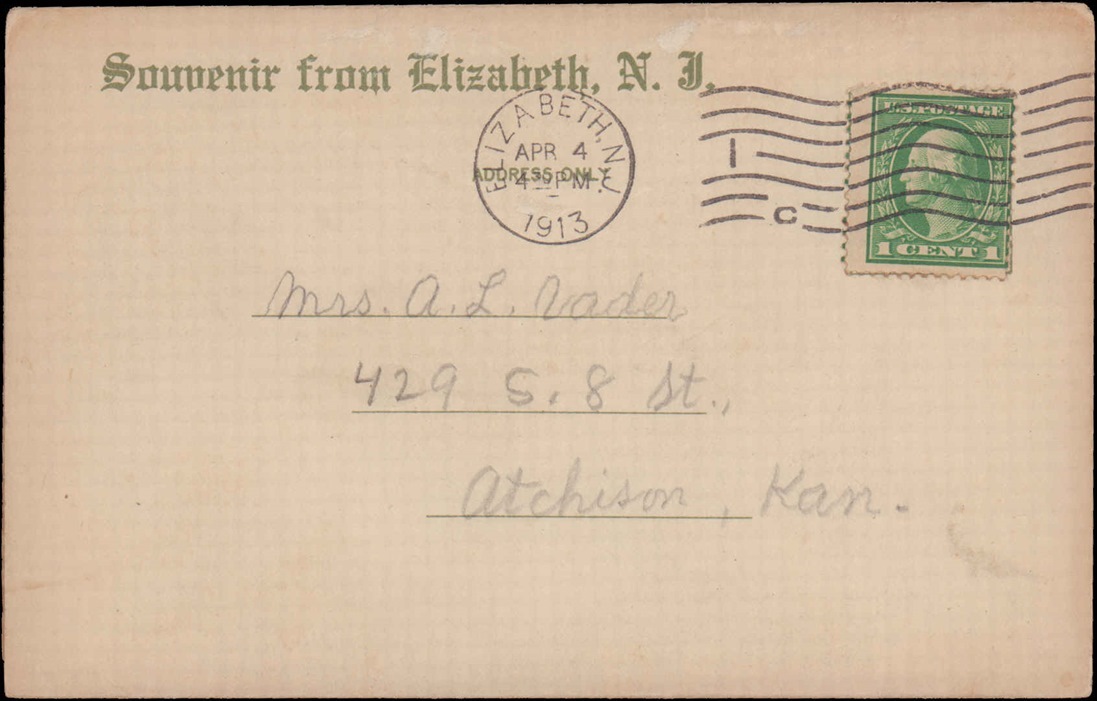 Souvenir from Elizabeth, N. J.
ELIZABETH, N.J.
APR 4
4 PM
1913
ADDRESS ONLY
1
C
U.S. POSTAGE
1 CENT 1
Mrs. A. L. Vader
429 S. 8 St.,
Atchison, Kan.